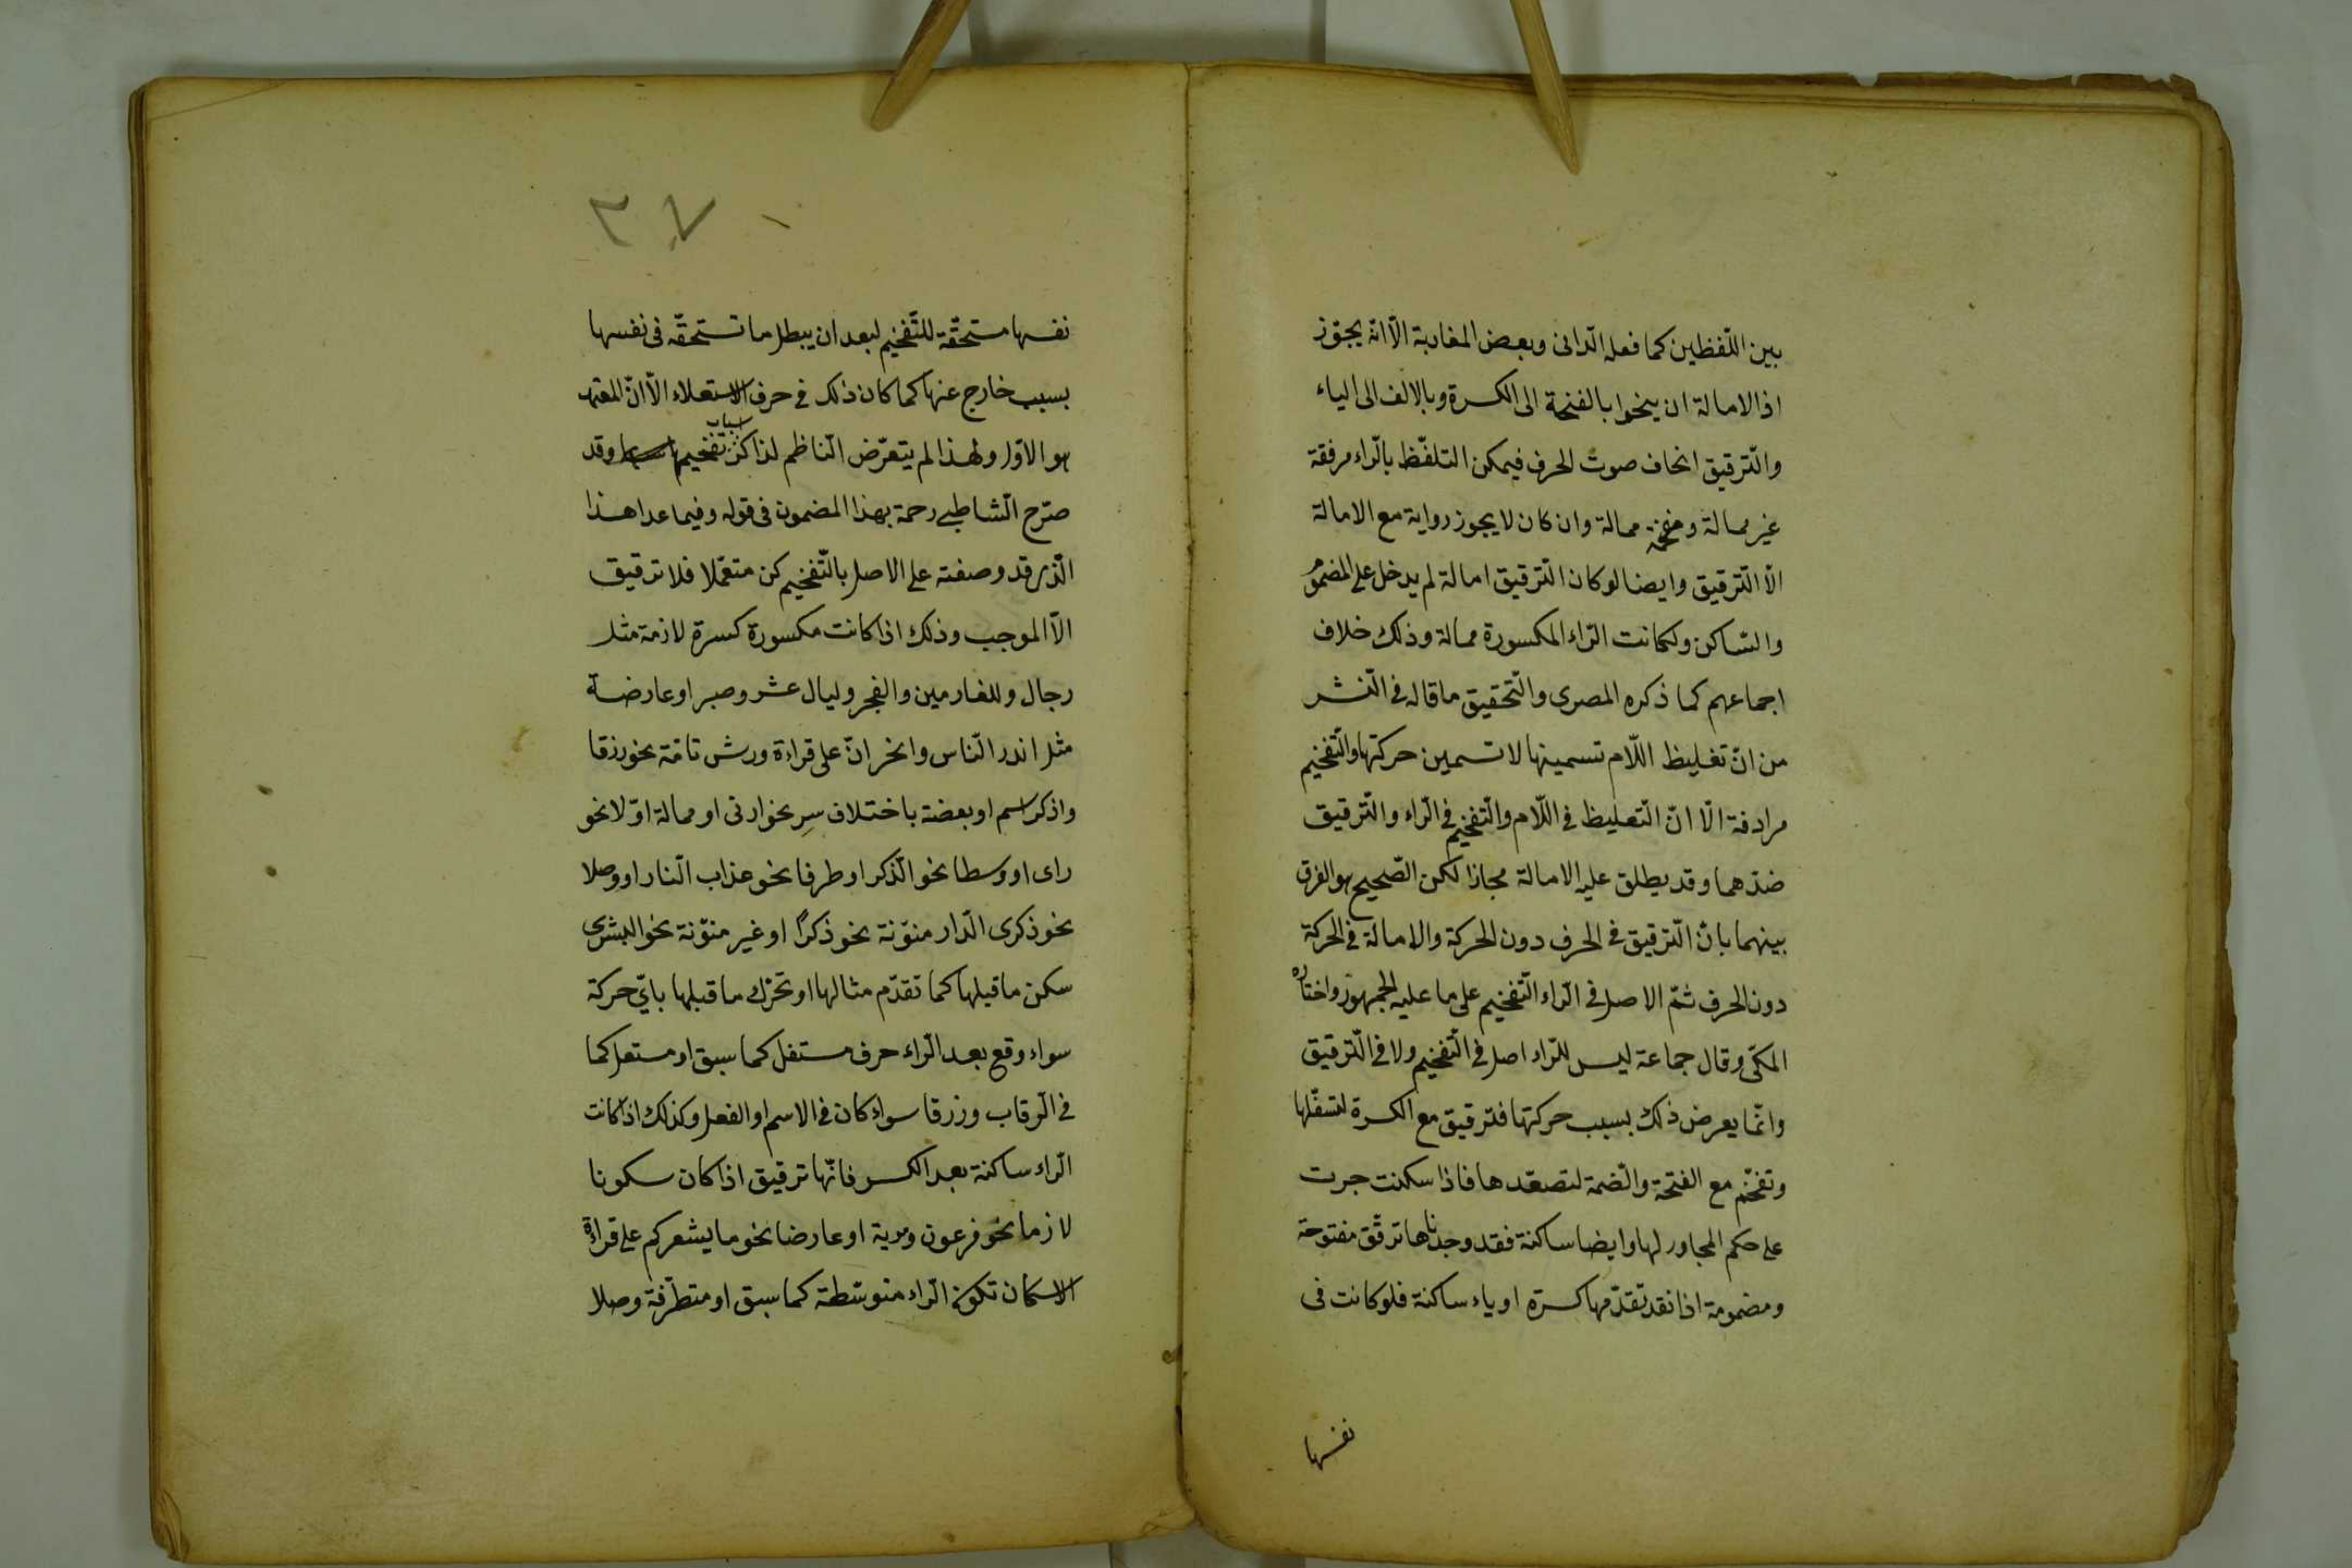 بين اللّفظين كما فعله الّدانى وبعض المغاربة الّا انّه يجّوز
اذ الامالة ان ينحوا بالفتحة الى الكسرة وبالالف الى الياء
والّترقيق انحاف صوت الحرف فيمكن التلفّظ بالّراء مرفقة
غير ممالة ومفخّمة ممالة وان كان لا يجوز رواية مع الامالة
الّا الّترقيق وايضا لوكان الّترقيق امالة لم يدخل على المضموم
والسّاكن ولكانت الرّاء المكسورة ممالة وذلك خلاف
اجماعهم كما ذكره المصرى والّتحقيق ماقاله فى الّنشر
من انّ تغليظ اللّام تسمينها لا تسمين حركتها والّتفخيم
مرادفة الّا انّ الّتغليظ فى اللّام والّتفخيم فى الّراء والّترقيق
ضدّهما وقد يطلق عليه الامالة مجازا لكن الصّحيح هو الفرق
بينهما بانّ الّترقيق فى الحرف دون الحركة والامالة فى الحركة
دون الحرف ثمّ الاصل فى الّراء الّتفخيم على ما عليه الجمهور واختاره
المكّى وقال جماعة ليس للرّاء اصل فى الّتفخيم ولا فى الّترقيق
وانّما يعرض ذلك بسبب حركتها فترقيق مع الكسرة لتسفّلها
وتفخّم مع الفتحة والّضمة لتصعّدها فاذا سكنت جرت
على حكم المجاور لها وايضا ساكنة فقد وجدناها ترقّق مفتوحة
ومضمومة اذا نقد تقدّمها كسرة او ياء ساكنة فلو كانت فى
نفسها
٣٧
نفسها مستحقّة للّتفخيم لبعد ان يبطل ما تستحقّه فى نفسها
بسبب خارج عنها كما كان ذلك فى حرف الاستعلاء الّا انّ المعتمد
هو الاوّل ولهذا لم يتعرّض الّناظم لذاكر اسباب تفخيمها وقد
صرّح الّشاطبى رحمة بهذا المضمون فى قوله وفيما عدا هذا
الّذى قد وصفته على الاصل بالّتفخيم كن متعمّلا فلا ترقيق
الّا الموجب وذلك اذا كانت مكسورة كسرة لازمة مثل
رجال وللغارمين والفجر وليال عشر وصبر او عارضة
مثل انذر الّناس وانحر انّ على قراءة ورش تامّة نحو رزقا
واذكر اسم او بعضة باختلاف سِر نحو ارنى او ممالة اوّلا نحو
راى او وسطا نحو الّذكر او طرفا نحو عذاب الّنار او وصلا
نحو ذكرى الّدار منوّنة نحو ذكرًا او غير منوّنة نحو البشرى
سكن ما قبلها كما تقدّم مثالها او تحرّك ما قبلها باىّ حركة
سواء وقع بعد الّراء حرف مستفل كما سبق او مستعل كما
فى الّرقاب ورزقا سواء كان فى الاسم او الفعل وكذلك اذا كانت
الّراء ساكنة بعد الكسر فانّها ترقيق اذا كان سكونا
لازما نحو فرعون ومرية او عارضا نحو ما يشعركم على قراءة
الاسكان تكون الّراء متوسّطة كما سبق او متطرّفة وصلا